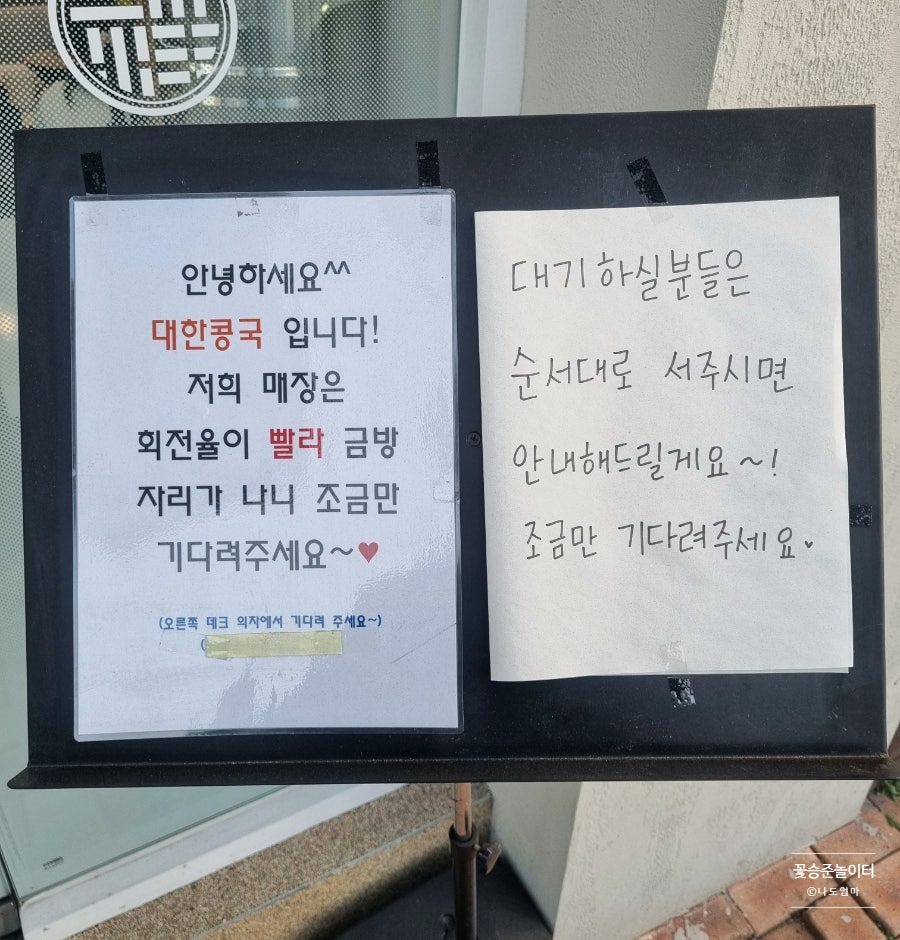 안녕하세요^^
대한콩국 입니다!
저희 매장은
회전율이 빨라 금방
자리가 나니 조금만
기다려주세요~♥
(오른쪽 데크 의자에서 기다려 주세요~)
(
대기하실분들은
순서대로 서주시면
안내해드릴게요~!
조금만 기다려주세요♥
꽃승준놀이터
©나도엄마